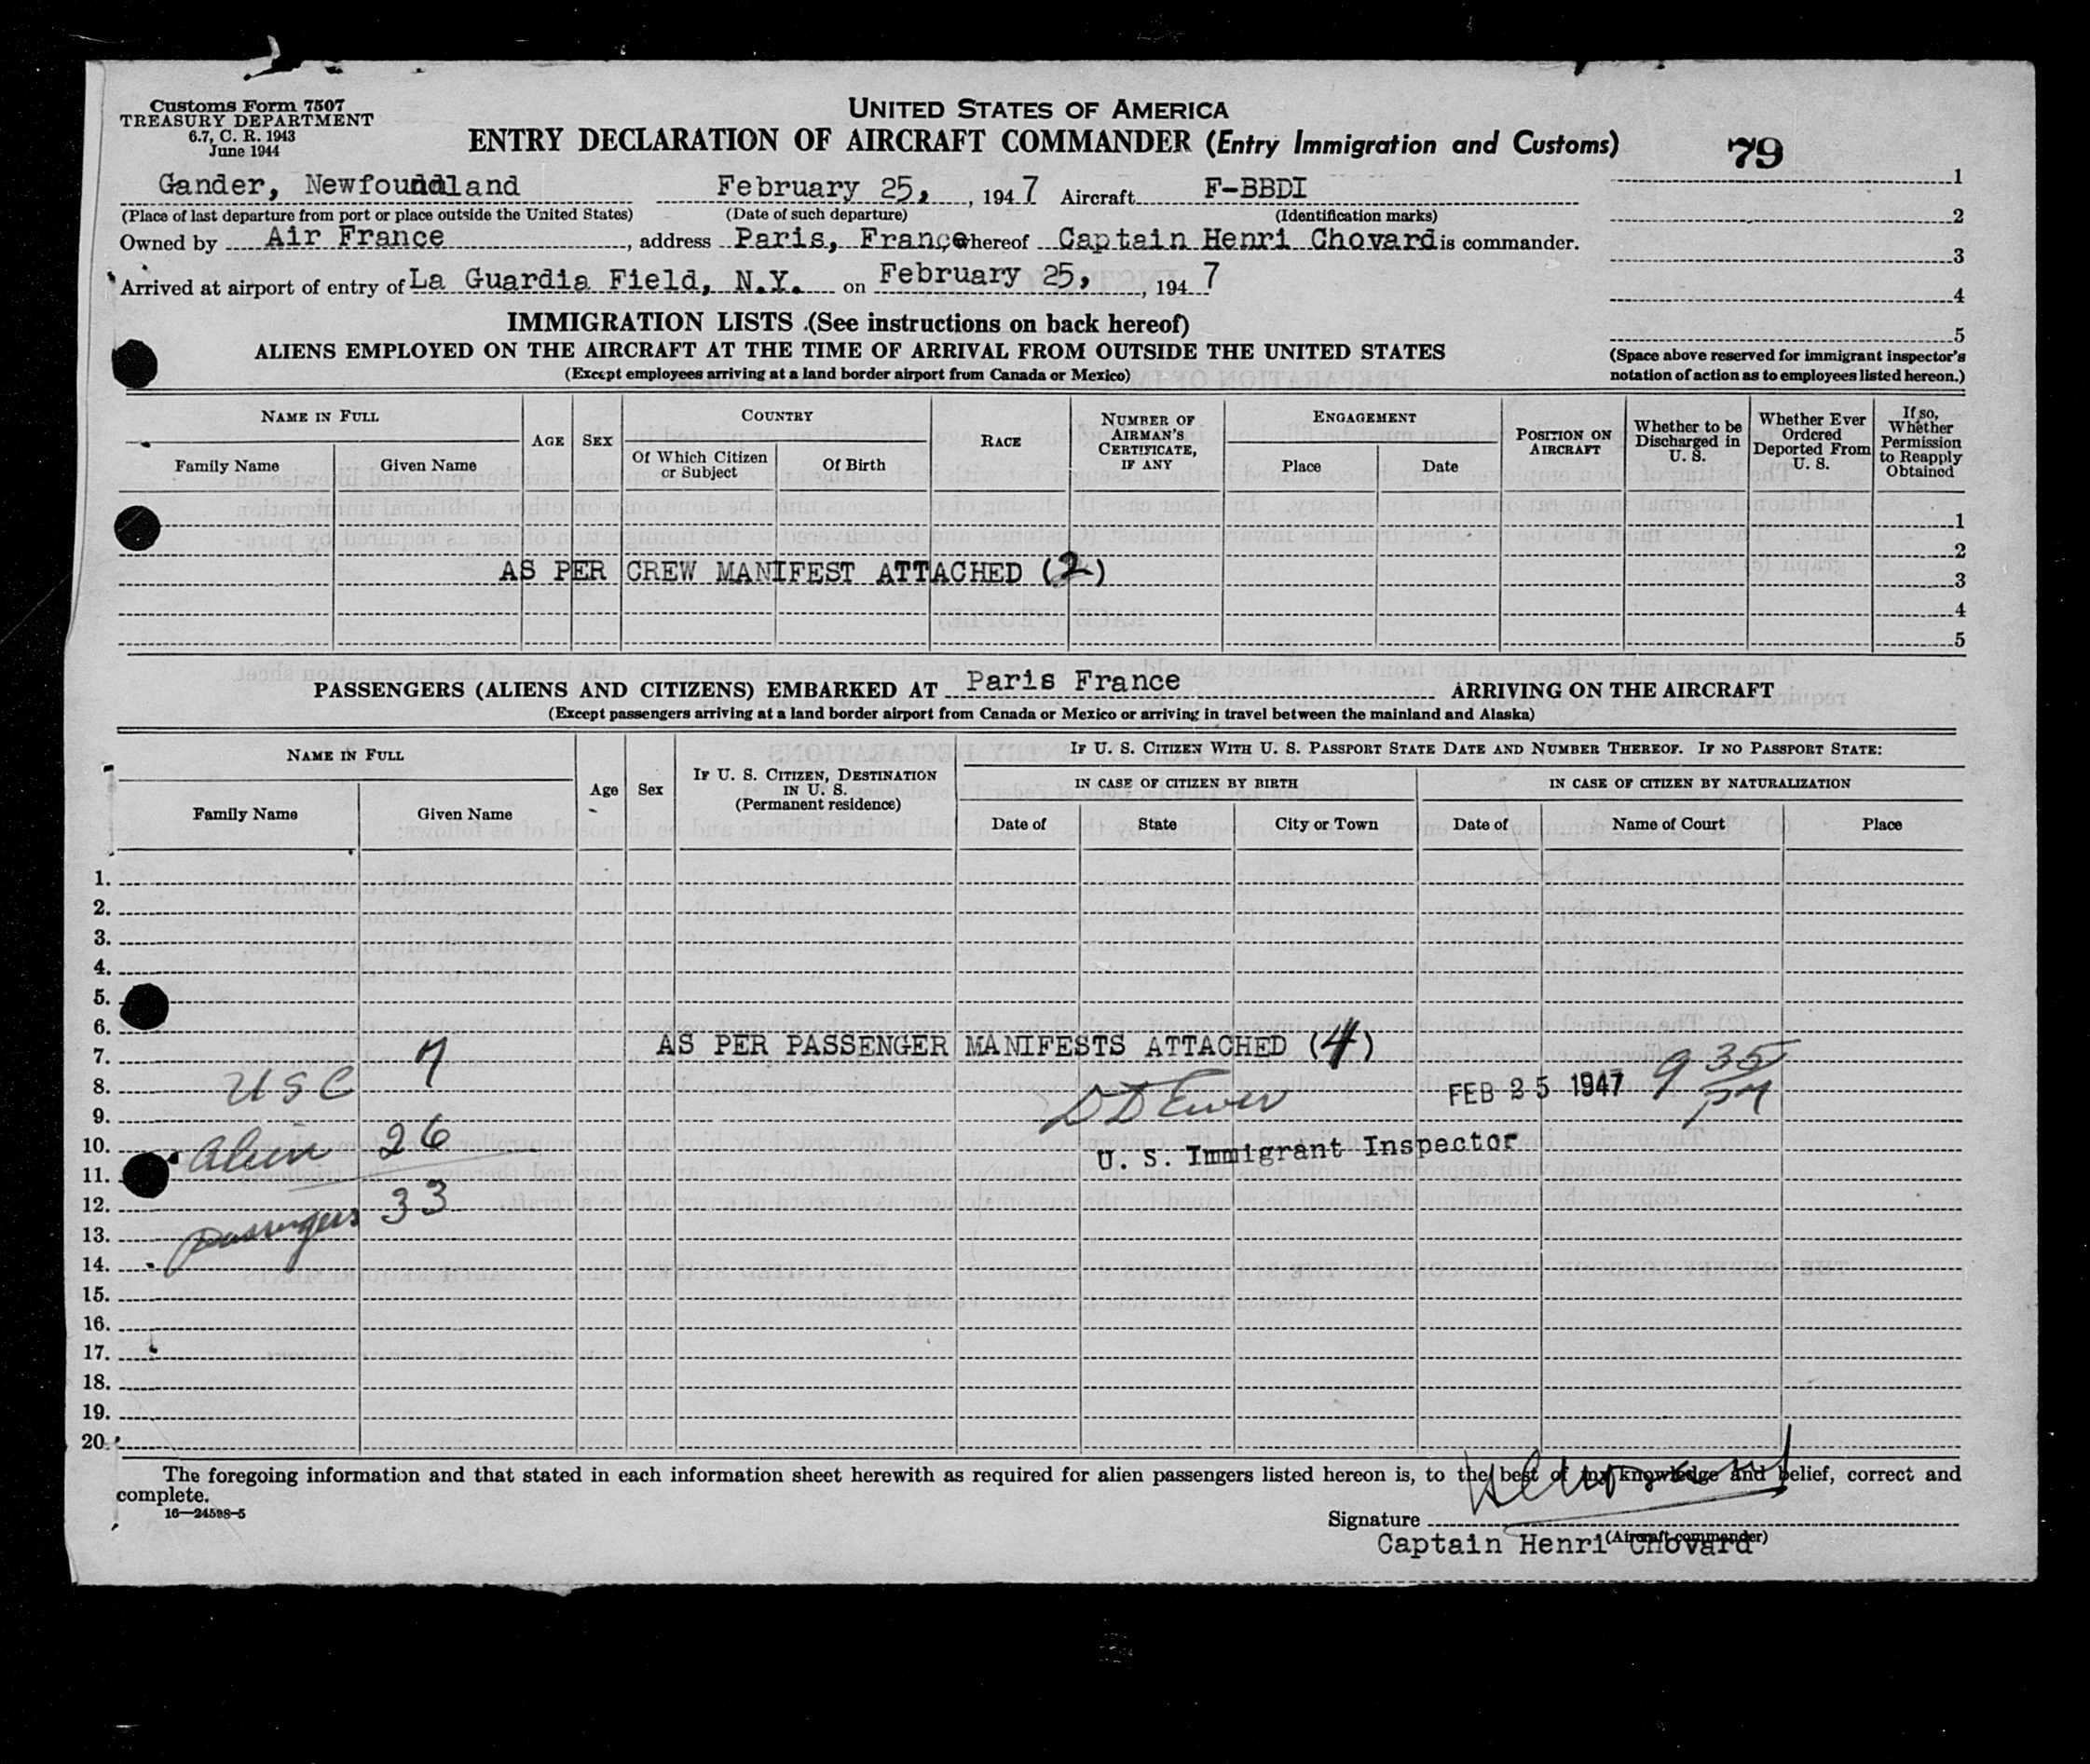 Customs Form 7507
TREASURY DEPARTMENT
6.7, C. R. 1943
June 1944
UNITED STATES OF AMERICA
ENTRY DECLARATION OF AIRCRAFT COMMANDER (Entry Immigration and Customs)
79
Gander, Newfoundland February 25, , 1947 Aircraft F-BBDI
(Place of last departure from port or place outside the United States) (Date of such departure) (Identification marks)
Owned by Air France , address Paris, France hereof Captain Henri Chovard is commander.
Arrived at airport of entry of La Guardia Field, N.Y. on February 25, , 1947
1
2
3
4
5
(Space above reserved for immigrant inspector's
notation of action as to employees listed hereon.)
IMMIGRATION LISTS (See instructions on back hereof)
ALIENS EMPLOYED ON THE AIRCRAFT AT THE TIME OF ARRIVAL FROM OUTSIDE THE UNITED STATES
(Except employees arriving at a land border airport from Canada or Mexico)
NAME IN FULL
Family Name Given Name
AGE SEX
COUNTRY
Of Which Citizen or Subject Of Birth
RACE
NUMBER OF AIRMAN'S CERTIFICATE, IF ANY
ENGAGEMENT
Place Date
POSITION ON AIRCRAFT
Whether to be Discharged in U. S.
Whether Ever Ordered Deported From U. S.
If so, Whether Permission to Reapply Obtained
1
2
AS PER CREW MANIFEST ATTACHED (2) 3
4
5
PASSENGERS (ALIENS AND CITIZENS) EMBARKED AT Paris France ARRIVING ON THE AIRCRAFT
(Except passengers arriving at a land border airport from Canada or Mexico or arriving in travel between the mainland and Alaska)
NAME IN FULL
Family Name Given Name
Age Sex
IF U. S. CITIZEN, DESTINATION IN U. S. (Permanent residence)
IF U. S. CITIZEN WITH U. S. PASSPORT STATE DATE AND NUMBER THEREOF. IF NO PASSPORT STATE:
IN CASE OF CITIZEN BY BIRTH IN CASE OF CITIZEN BY NATURALIZATION
Date of State City or Town Date of Name of Court Place
1.
2.
3.
4.
5.
6.
7. AS PER PASSENGER MANIFESTS ATTACHED (4)
8. USC 7 FEB 25 1947 9 35 PM
9.
10. Alien 26 U. S. Immigrant Inspector
11.
12. Passengers 33
13.
14.
15.
16.
17.
18.
19.
20.
The foregoing information and that stated in each information sheet herewith as required for alien passengers listed hereon is, to the best of my knowledge and belief, correct and
complete.
16—24598-5
Signature
(Aircraft commander)
Captain Henri Chovard